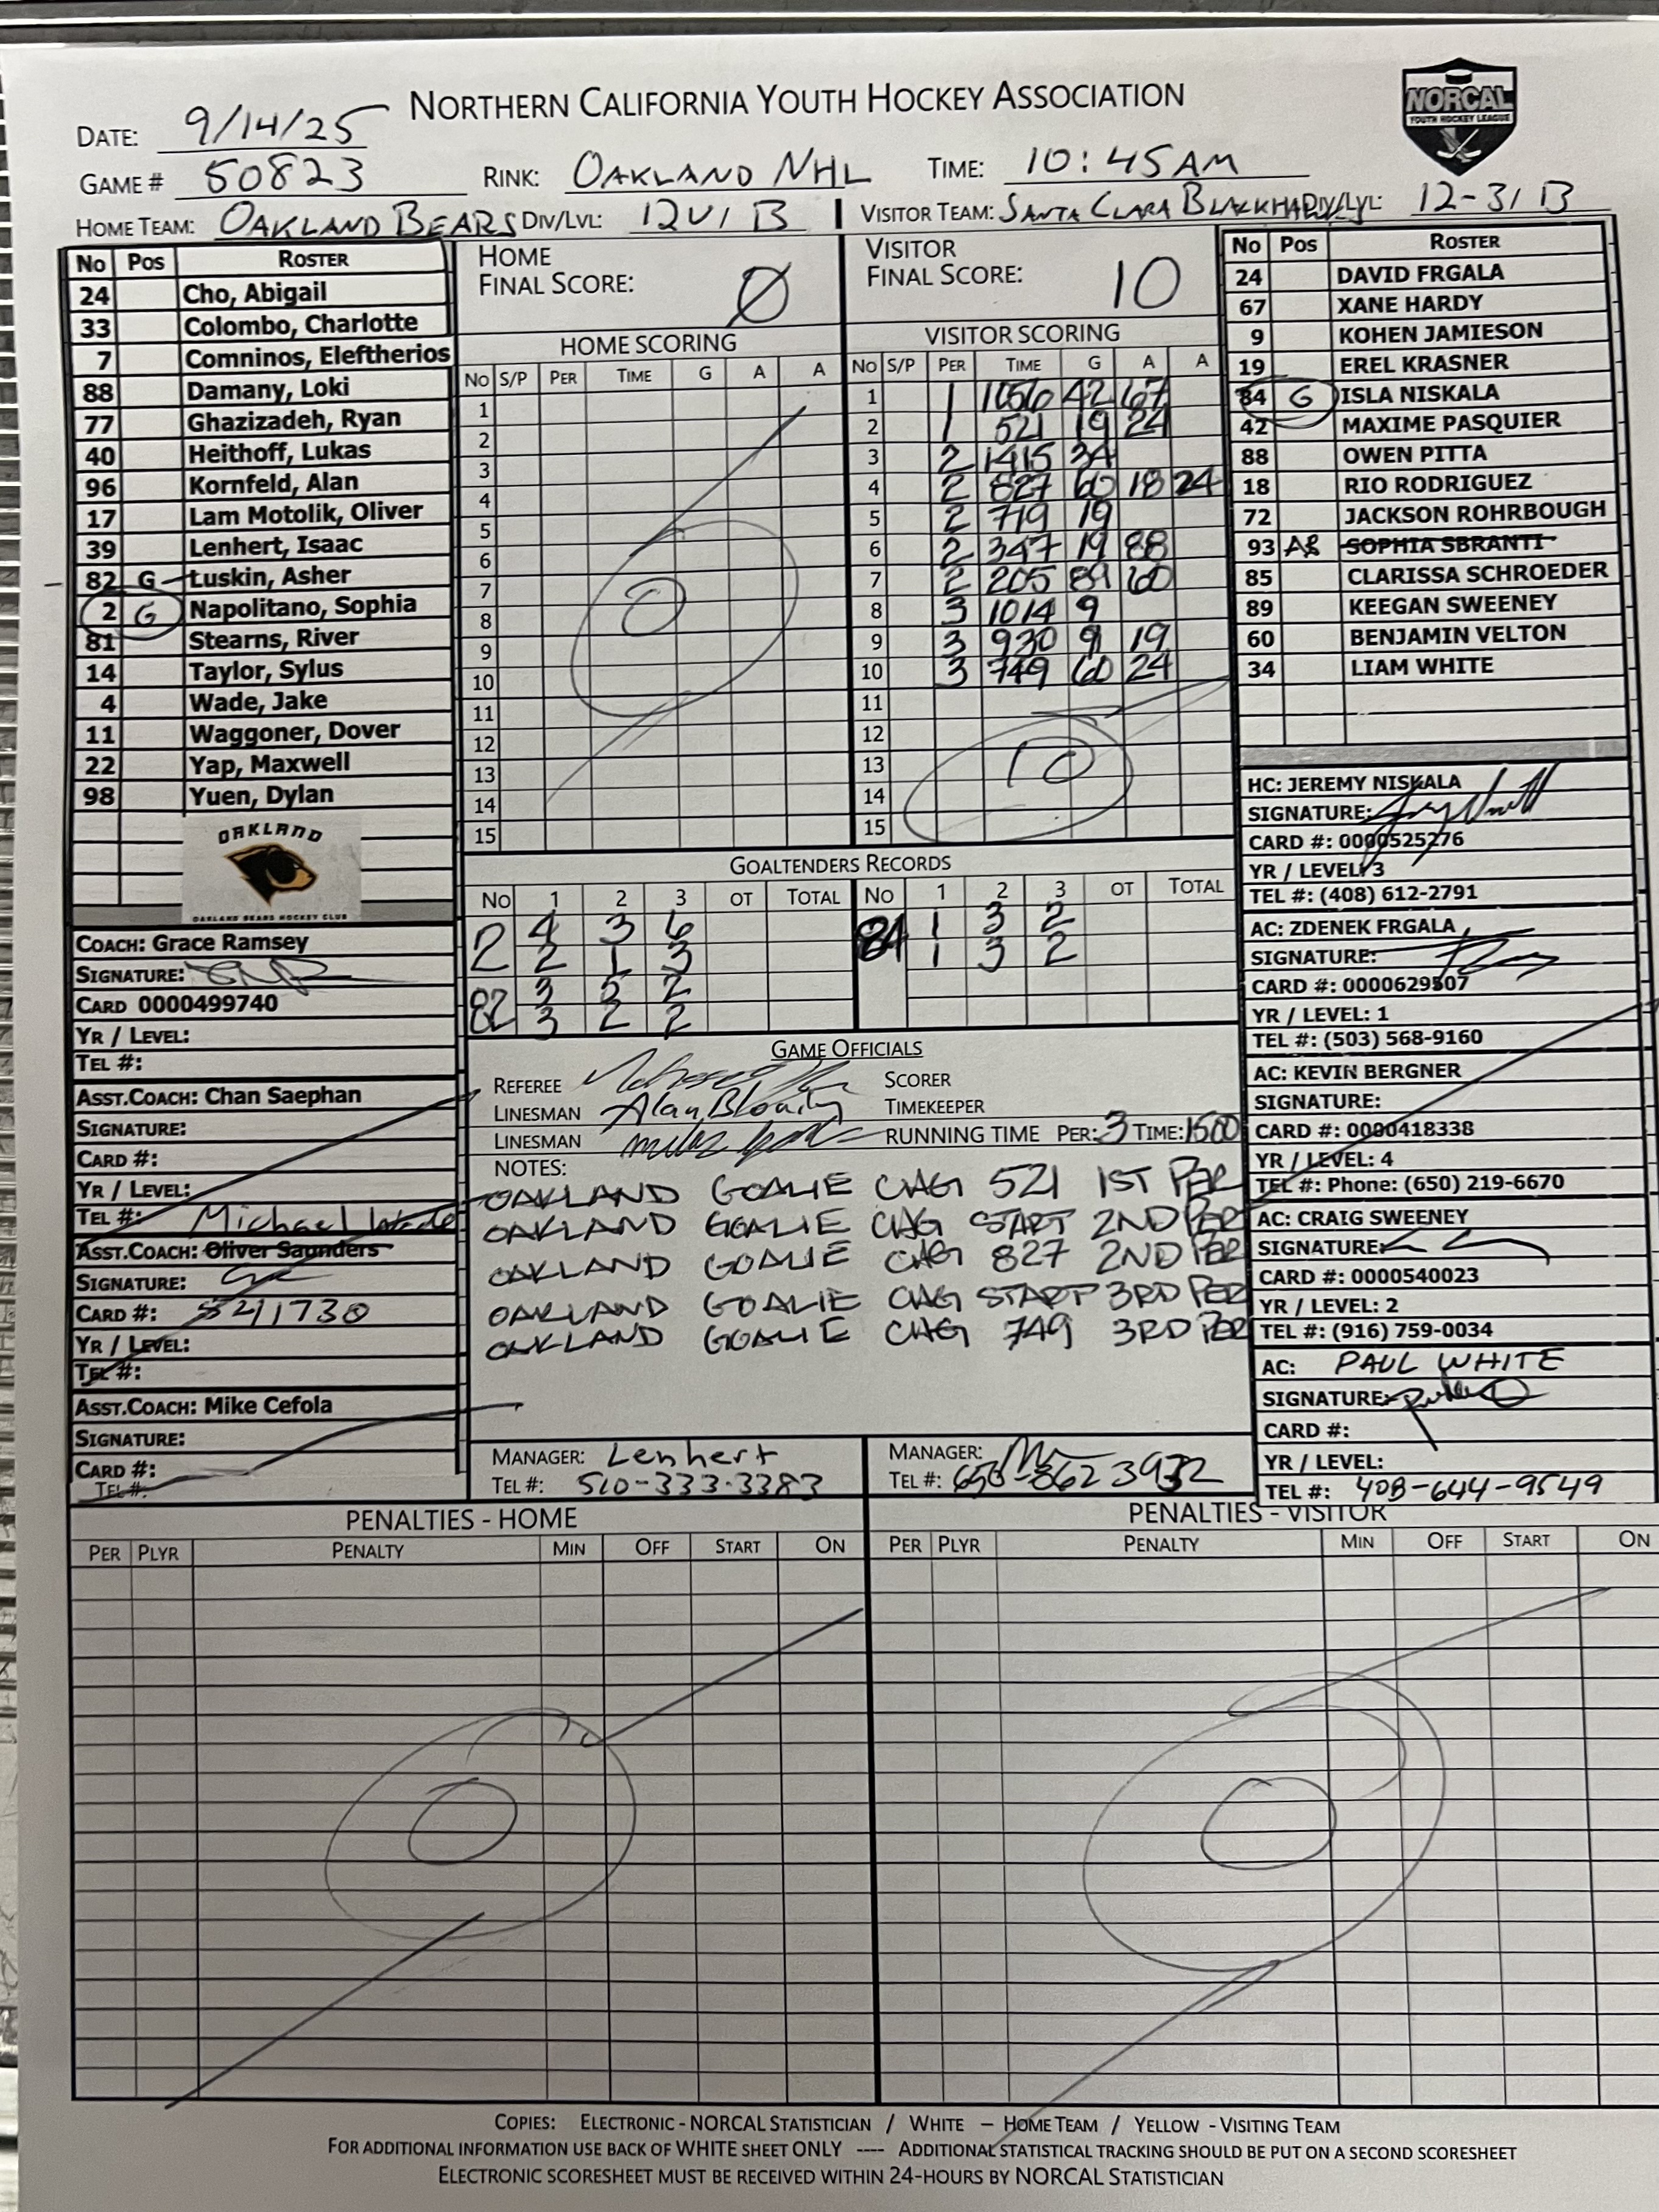 NORTHERN CALIFORNIA YOUTH HOCKEY ASSOCIATION
NORCAL
YOUTH HOCKEY LEAGUE
DATE: 9/14/25
GAME # 50823 RINK: OAKLAND NHL TIME: 10:45AM
HOME TEAM: OAKLAND BEARS DIV/LVL: 12U/B
VISITOR TEAM: SANTA CLARA BLACKHAWKS DIV/LVL: 12-3/B
No Pos ROSTER
24 Cho, Abigail
33 Colombo, Charlotte
7 Comninos, Eleftherios
88 Damany, Loki
77 Ghazizadeh, Ryan
40 Heithoff, Lukas
96 Kornfeld, Alan
17 Lam Motolik, Oliver
39 Lenhert, Isaac
82 G Luskin, Asher
2 G Napolitano, Sophia
81 Stearns, River
14 Taylor, Sylus
4 Wade, Jake
11 Waggoner, Dover
22 Yap, Maxwell
98 Yuen, Dylan
OAKLAND
OAKLAND BEARS HOCKEY CLUB
COACH: Grace Ramsey
SIGNATURE:
CARD 0000499740
YR / LEVEL:
TEL #:
ASST.COACH: Chan Saephan
SIGNATURE:
CARD #:
YR / LEVEL:
TEL #: Michael Wade
ASST.COACH: Oliver Saunders
SIGNATURE:
CARD #: 541730
YR / LEVEL:
TEL #:
ASST.COACH: Mike Cefola
SIGNATURE:
CARD #:
TEL #:
HOME
FINAL SCORE: Ø
HOME SCORING
No S/P PER TIME G A A
1
2
3
4
5
6
7
8
9
10
11
12
13
14
15
0
VISITOR
FINAL SCORE: 10
VISITOR SCORING
No S/P PER TIME G A A
1 1 1056 42 67
2 1 521 19 24
3 2 1415 34
4 2 827 60 18 24
5 2 719 19
6 2 347 19 88
7 2 205 89 60
8 3 1014 9
9 3 930 9 19
10 3 749 60 24
11
12
13
14
15
10
GOALTENDERS RECORDS
No 1 2 3 OT TOTAL No 1 2 3 OT TOTAL
2 4 3 6 84 1 3 2
2 1 3 1 3 2
82 3 5 2
3 2 2
GAME OFFICIALS
REFEREE SCORER
LINESMAN Alan TIMEKEEPER
LINESMAN RUNNING TIME PER: 3 TIME: 1500
NOTES:
OAKLAND GOALIE CHG 521 1ST PER
OAKLAND GOALIE CHG START 2ND PER
OAKLAND GOALIE CHG 827 2ND PER
OAKLAND GOALIE CHG START 3RD PER
OAKLAND GOALIE CHG 749 3RD PER
MANAGER: Lenhert
TEL #: 510-333-3383
MANAGER:
TEL #: 650-862 3932
No Pos ROSTER
24 DAVID FRGALA
67 XANE HARDY
9 KOHEN JAMIESON
19 EREL KRASNER
84 G ISLA NISKALA
42 MAXIME PASQUIER
88 OWEN PITTA
18 RIO RODRIGUEZ
72 JACKSON ROHRBOUGH
93 SOPHIA SBRANTI
85 CLARISSA SCHROEDER
89 KEEGAN SWEENEY
60 BENJAMIN VELTON
34 LIAM WHITE
HC: JEREMY NISKALA
SIGNATURE:
CARD #: 0000525276
YR / LEVEL: 3
TEL #: (408) 612-2791
AC: ZDENEK FRGALA
SIGNATURE:
CARD #: 0000629507
YR / LEVEL: 1
TEL #: (503) 568-9160
AC: KEVIN BERGNER
SIGNATURE:
CARD #: 0000418338
YR / LEVEL: 4
TEL #: Phone: (650) 219-6670
AC: CRAIG SWEENEY
SIGNATURE:
CARD #: 0000540023
YR / LEVEL: 2
TEL #: (916) 759-0034
AC: PAUL WHITE
SIGNATURE:
CARD #:
YR / LEVEL:
TEL #: 408-644-9549
PENALTIES - HOME
PER PLYR PENALTY MIN OFF START ON
0
PENALTIES - VISITOR
PER PLYR PENALTY MIN OFF START ON
0
COPIES: ELECTRONIC - NORCAL STATISTICIAN / WHITE – HOME TEAM / YELLOW - VISITING TEAM
FOR ADDITIONAL INFORMATION USE BACK OF WHITE SHEET ONLY ---- ADDITIONAL STATISTICAL TRACKING SHOULD BE PUT ON A SECOND SCORESHEET
ELECTRONIC SCORESHEET MUST BE RECEIVED WITHIN 24-HOURS BY NORCAL STATISTICIAN